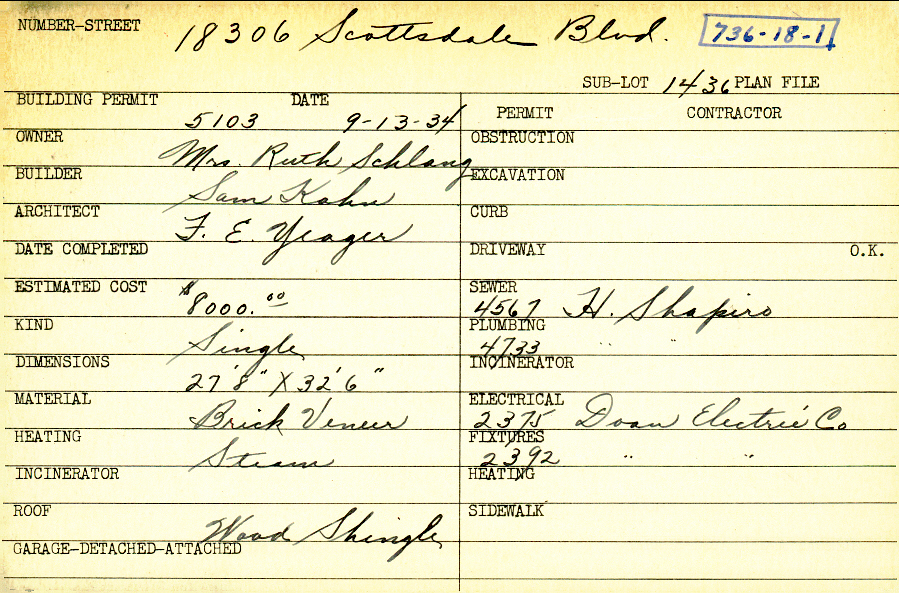 NUMBER-STREET 18306 Scottsdale Blvd. 736-18-1
SUB-LOT 1436 PLAN FILE
BUILDING PERMIT 5103 DATE 9-13-34
PERMIT CONTRACTOR
OWNER Mrs. Ruth Schlang
OBSTRUCTION
BUILDER Sam Kahn
EXCAVATION
ARCHITECT F. E. Yeager
CURB
DATE COMPLETED
DRIVEWAY O.K.
ESTIMATED COST $8000.00
SEWER 4567 H. Shapiro
KIND Single
PLUMBING 4733 " "
DIMENSIONS 27'8" X 32'6"
INCINERATOR
MATERIAL Brick Veneer
ELECTRICAL 2375 Doan Electric Co
HEATING Steam
FIXTURES 2392 " "
INCINERATOR
HEATING
ROOF Wood Shingle
SIDEWALK
GARAGE-DETACHED-ATTACHED